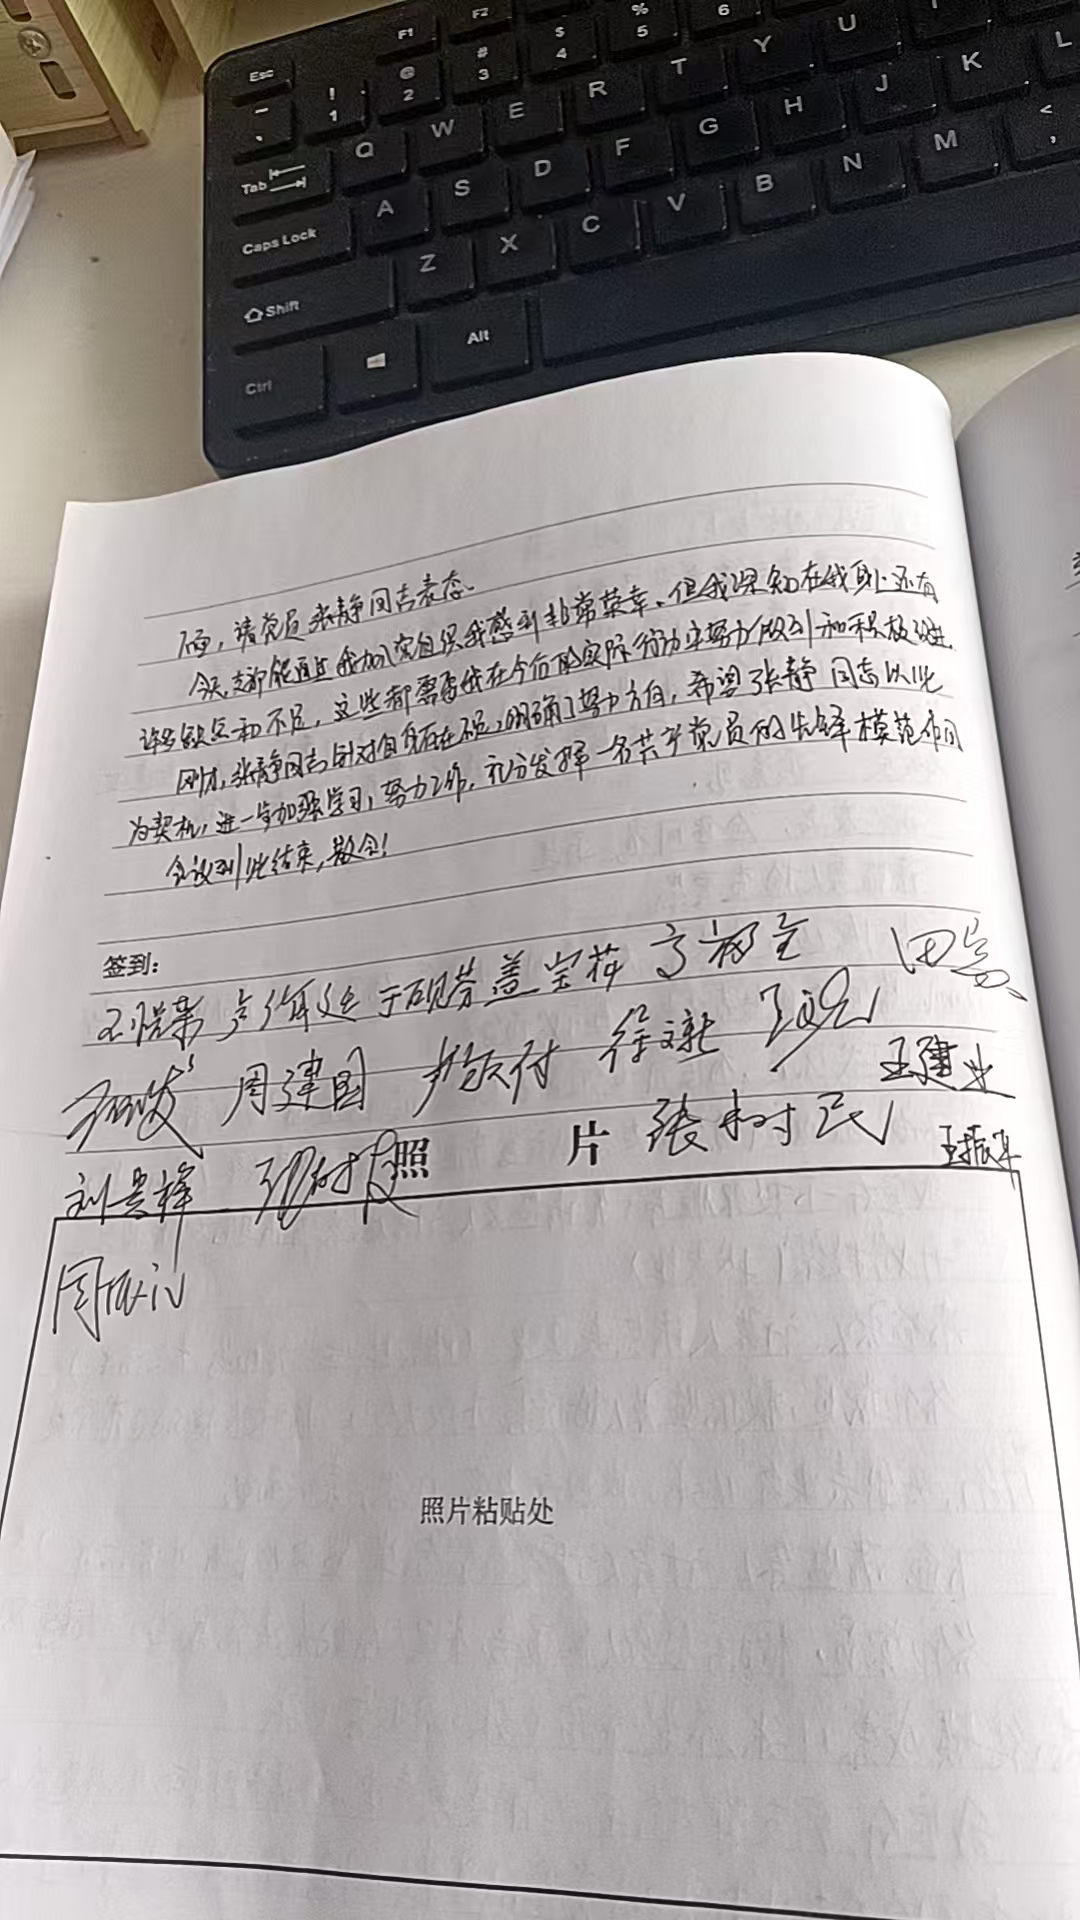 Esc F1 F2
! 1 @ 2 # 3 $ 4 % 5 6
Tab Q W E R T Y U I
Caps Lock A S D F G H J K L
Shift Z X C V B N M < ,
Ctrl Alt
下面，请党员张静同志表态。
今天支部能通过我加入党组织我感到非常荣幸、但我深知在我身上还有
许多缺点和不足，这些都需要我在今后的实际行动中努力做到和积极改进。
刚才，张静同志针对自身存在不足，明确了努力方向，希望张静同志以此
为契机，进一步加强学习，努力工作，充分发挥一名共产党员的先锋模范作用
会议到此结束，散会！
签到：
盖宝 田
周建国 徐 王建业
照 片 张树民 王振
刘贵 张树
周
照片粘贴处